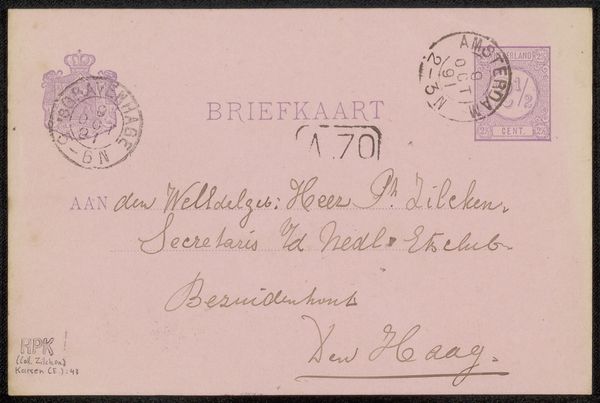 'S GRAVENHAGE
5-6N
AMSTERDAM
8 OCT 91
2-3 N
NEDERLAND
2½
CENT.
BRIEFKAART
A.70
AAN den WelEdelgeb: Heer Ph. Zilcken.
Secretaris v/d Nedl. Etsclub.
Bezuidenhout
Den Haag.
RPK
(Col. Zilcken)
Karsen (E.): 43